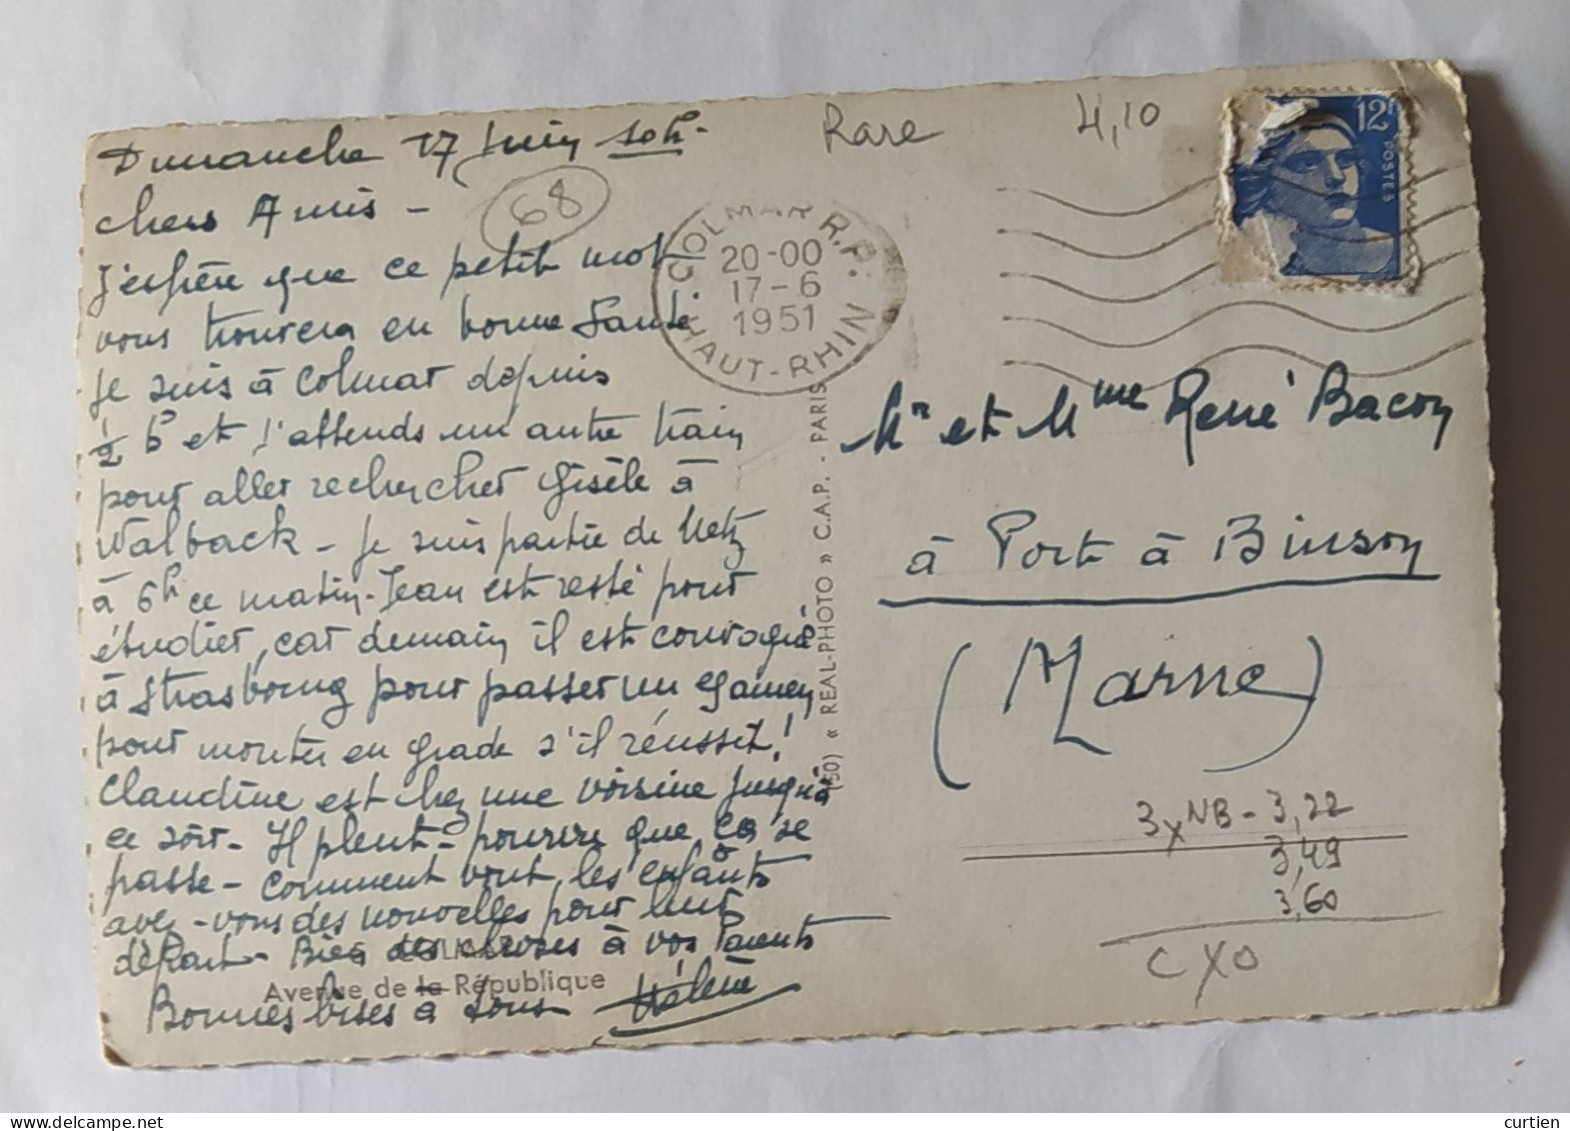 Dimanche 17 Juin 10h-
Rare
4,10
12F
POSTES
68
chers Amis -
COLMAR R.P.
20-00
17-6
1951
HAUT-RHIN
J'espère que ce petit mot
vous trouvera en bonne Santé
je suis à Colmar depuis
1/2 h et j'attends un autre train
pour aller rechercher Gisèle à
Walback - je suis partie de Metz
à 6h ce matin - Jean est resté pour
étudier, car demain il est convoqué
à Strasbourg pour passer un examen
pour monter en grade s'il réussit!
Claudine est chez une voisine jusqu'à
ce soir - Il pleut - pourvu que ça se
passe - comment vont les enfants
avez-vous des nouvelles pour leur
départ - Bien des choses à vos Parents
Bonnes bises à tous Hélène
COLMAR
Avenue de la République
(50) « REAL-PHOTO » C.A.P. - PARIS
Mr et Mme René Bacon
à Port à Binson
(Marne)
3xNB - 3,22
3,49
3,60
CXO
curtien